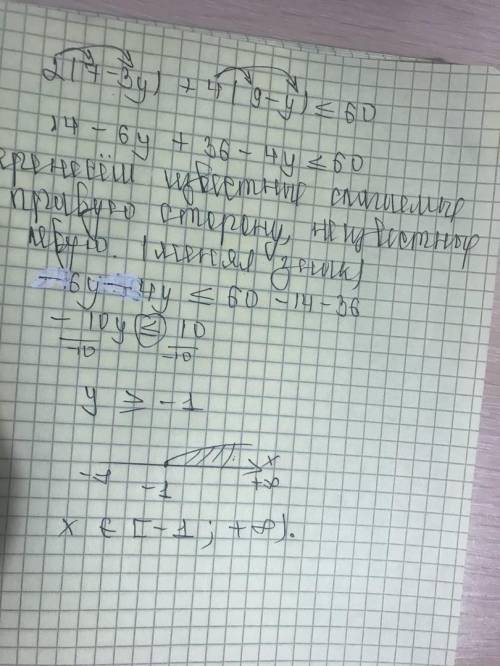 2(7 - 3y) + 4(9 - y) ≤ 60
14 - 6y + 36 - 4y ≤ 60
известные слагаемые
правую сторону, неизвестные
левую. (меняя знак)
- 6y - 4y ≤ 60 - 14 - 36
- 10y ≤ 10
-10 -10
y ≥ -1
-∞ -1 +∞ x
x ∈ [-1 ; +∞).